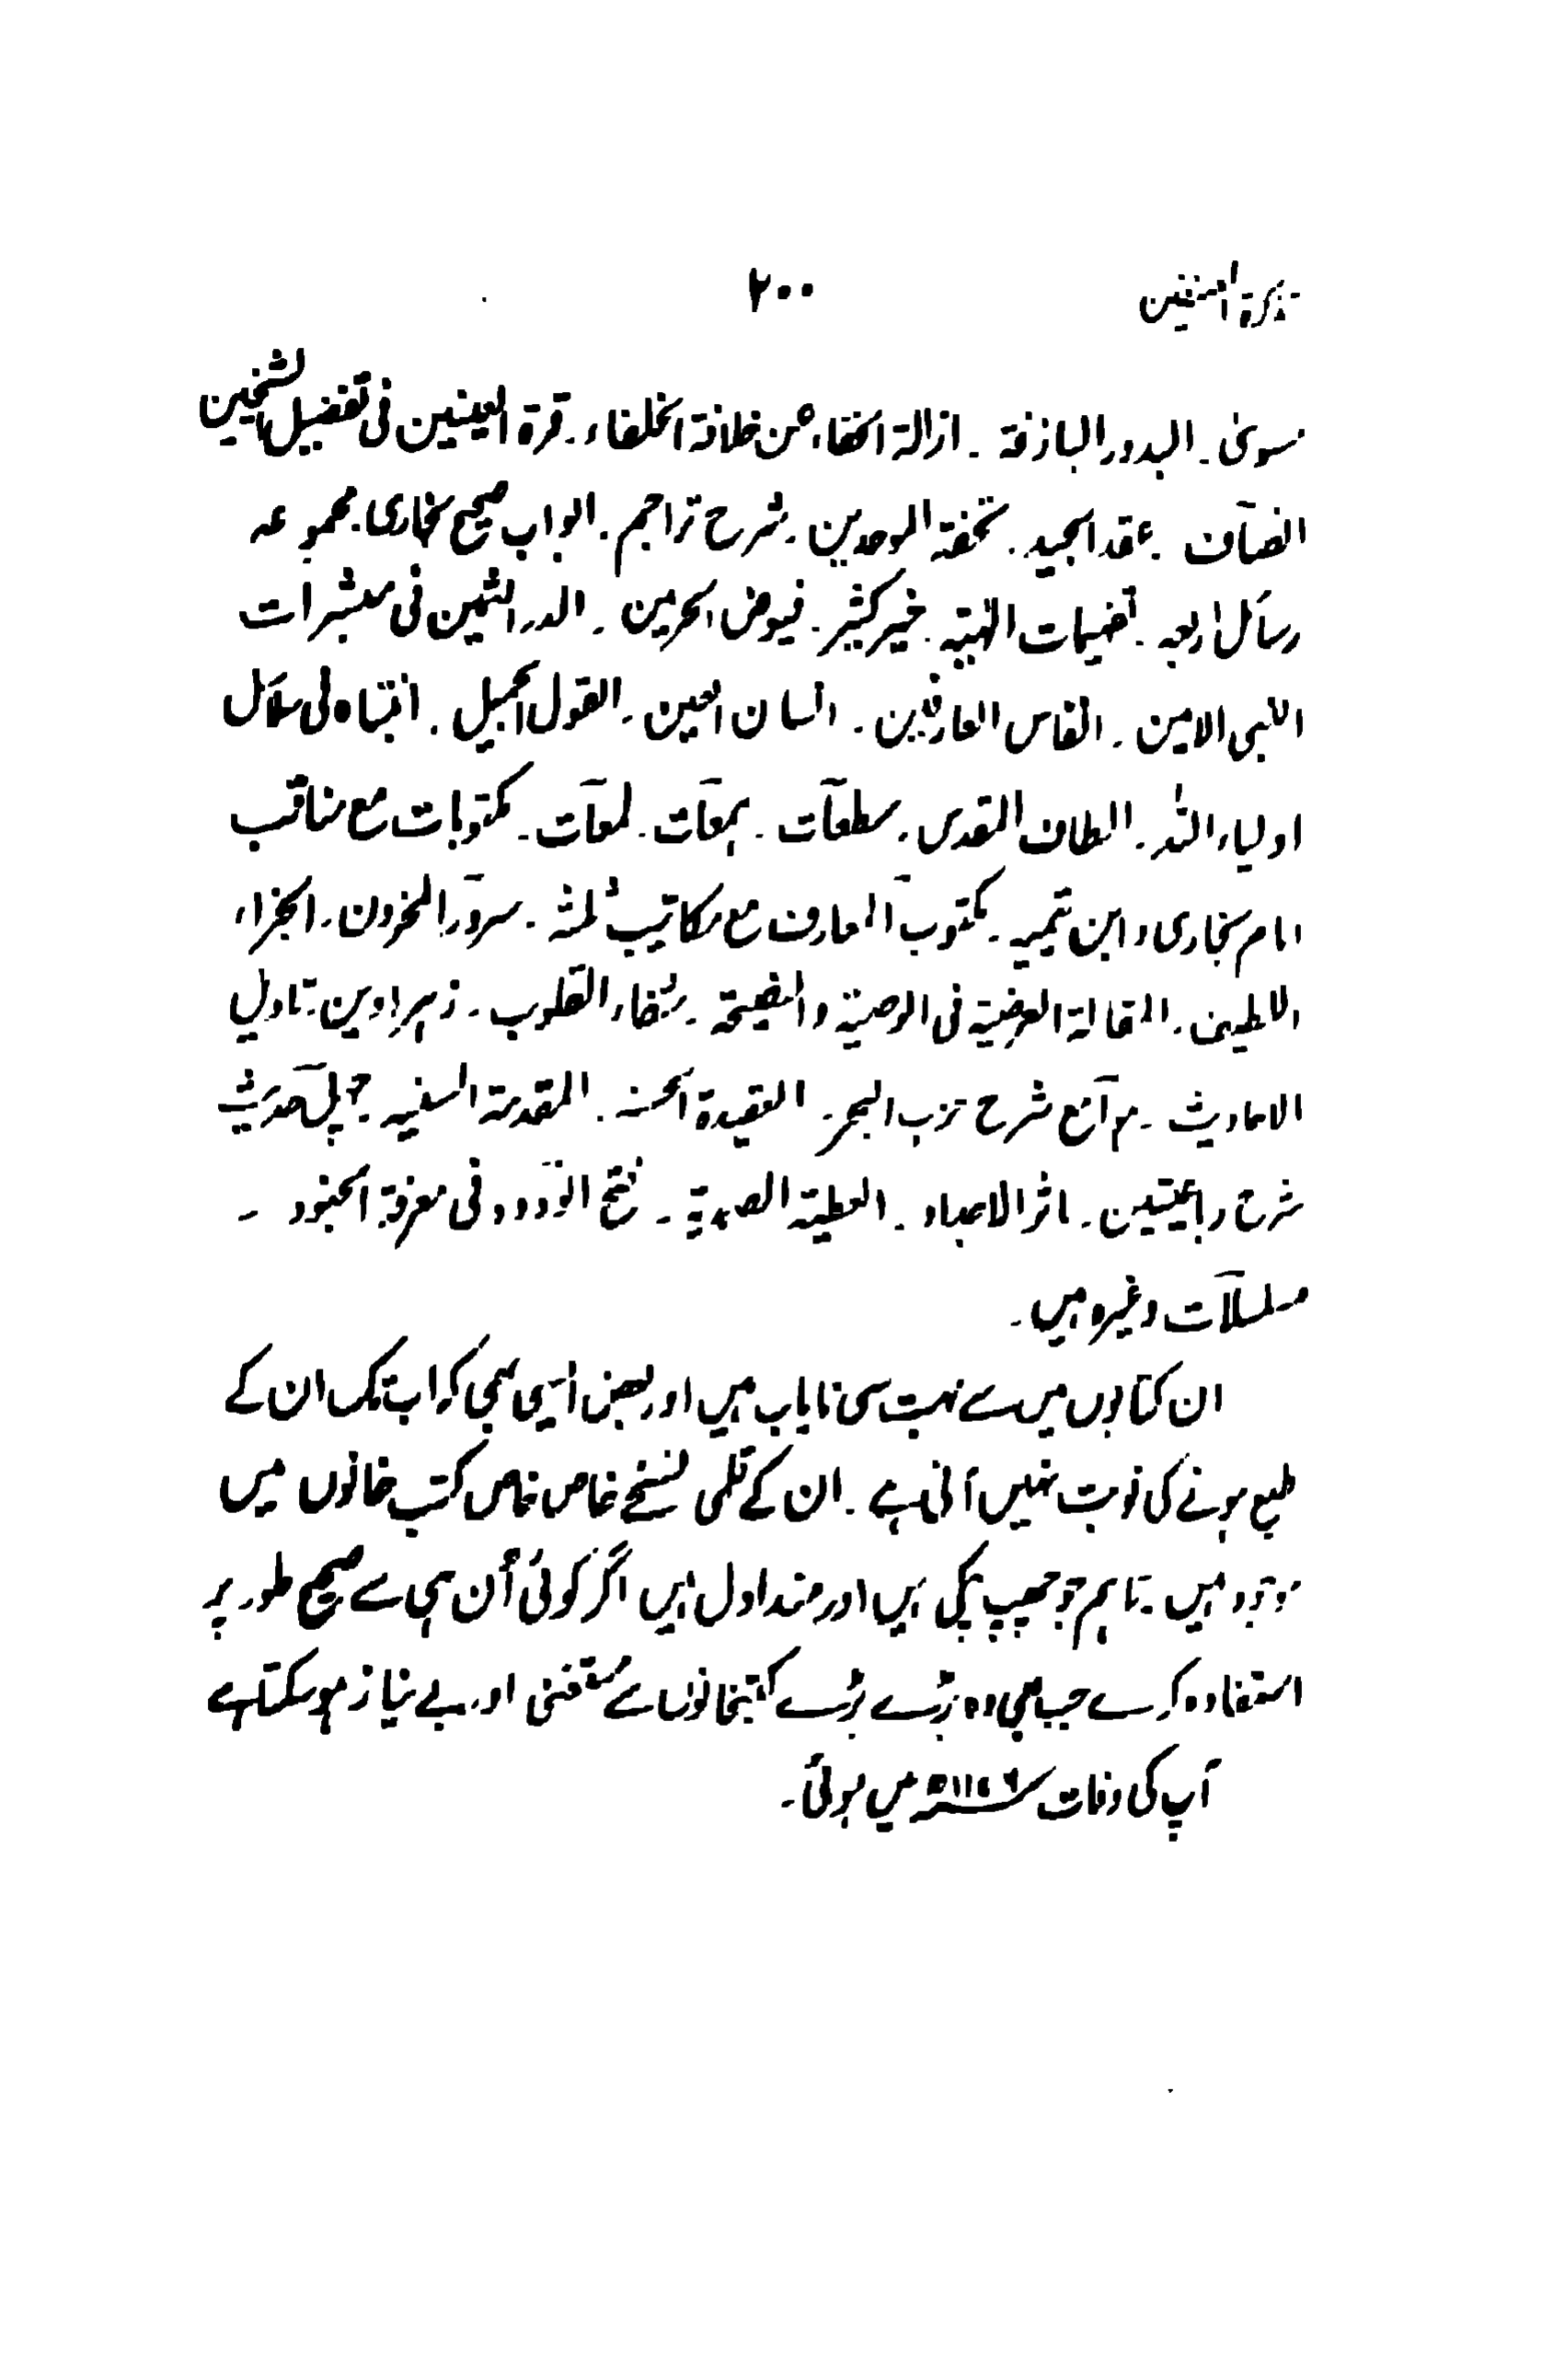 تذکرۃ المصنفین ۲۰۰
مسویٰ۔ البدور البازغۃ۔ ازالۃ الخفاء عن خلافۃ الخلفاء۔ قرۃ العینین فی تفضیل الشیخین
انصاف۔ عقد الجید۔ تحفۃ الموحدین۔ شرح تراجم۔ ابواب صحیح بخاری۔ مجموعہ
رسائل اربعہ۔ تفہیمات الٰہیۃ۔ خیر کثیر۔ فیوض الحرمین۔ الدر الثمین فی مبشرات
النبی الامین۔ انفاس العارفین۔ انسان العین۔ القول الجمیل۔ انتباہ فی سلاسل
اولیاء اللہ۔ الطاف القدس۔ سطعات۔ ہمعات۔ لمعات۔ مکتوبات مع مناقب
امام بخاری و ابن تیمیہ۔ مکتوب المعارف مع مکاتیب ثلثہ۔ سرور المحزون۔ الجزاء
اللطیف۔ المقالۃ الوضیۃ فی الوصیۃ والنصیحۃ۔ شفاء القلوب۔ زہراوین۔ تاویل
الاحادیث۔ ہوامع شرح حزب البحر۔ العقیدۃ الحسنہ۔ المقدمۃ السنیہ۔ چہل حدیث
شرح رباعیتین۔ ماثر الاجداد۔ العطیۃ الصمدیۃ۔ فتح الودود فی معرفۃ الجنود۔
مسلسلات وغیرہ ہیں۔
ان کتابوں میں سے بہت سی نایاب ہیں اور بعض ایسی بھی کہ اب تک ان کے
طبع ہونے کی نوبت نہیں آئی ہے۔ ان کے قلمی نسخے خاص خاص کتب خانوں میں
موجود ہیں۔ تاہم جو چھپ چکی ہیں اور متداول ہیں اگر کوئی اُن ہی سے صحیح طور پر
استفادہ کرے جب بھی وہ بڑے بڑے کتبخانوں سے مُستغنی اور بے نیاز ہو سکتا ہے
آپ کی وفات ۱۱۷۶ھ میں ہوئی۔